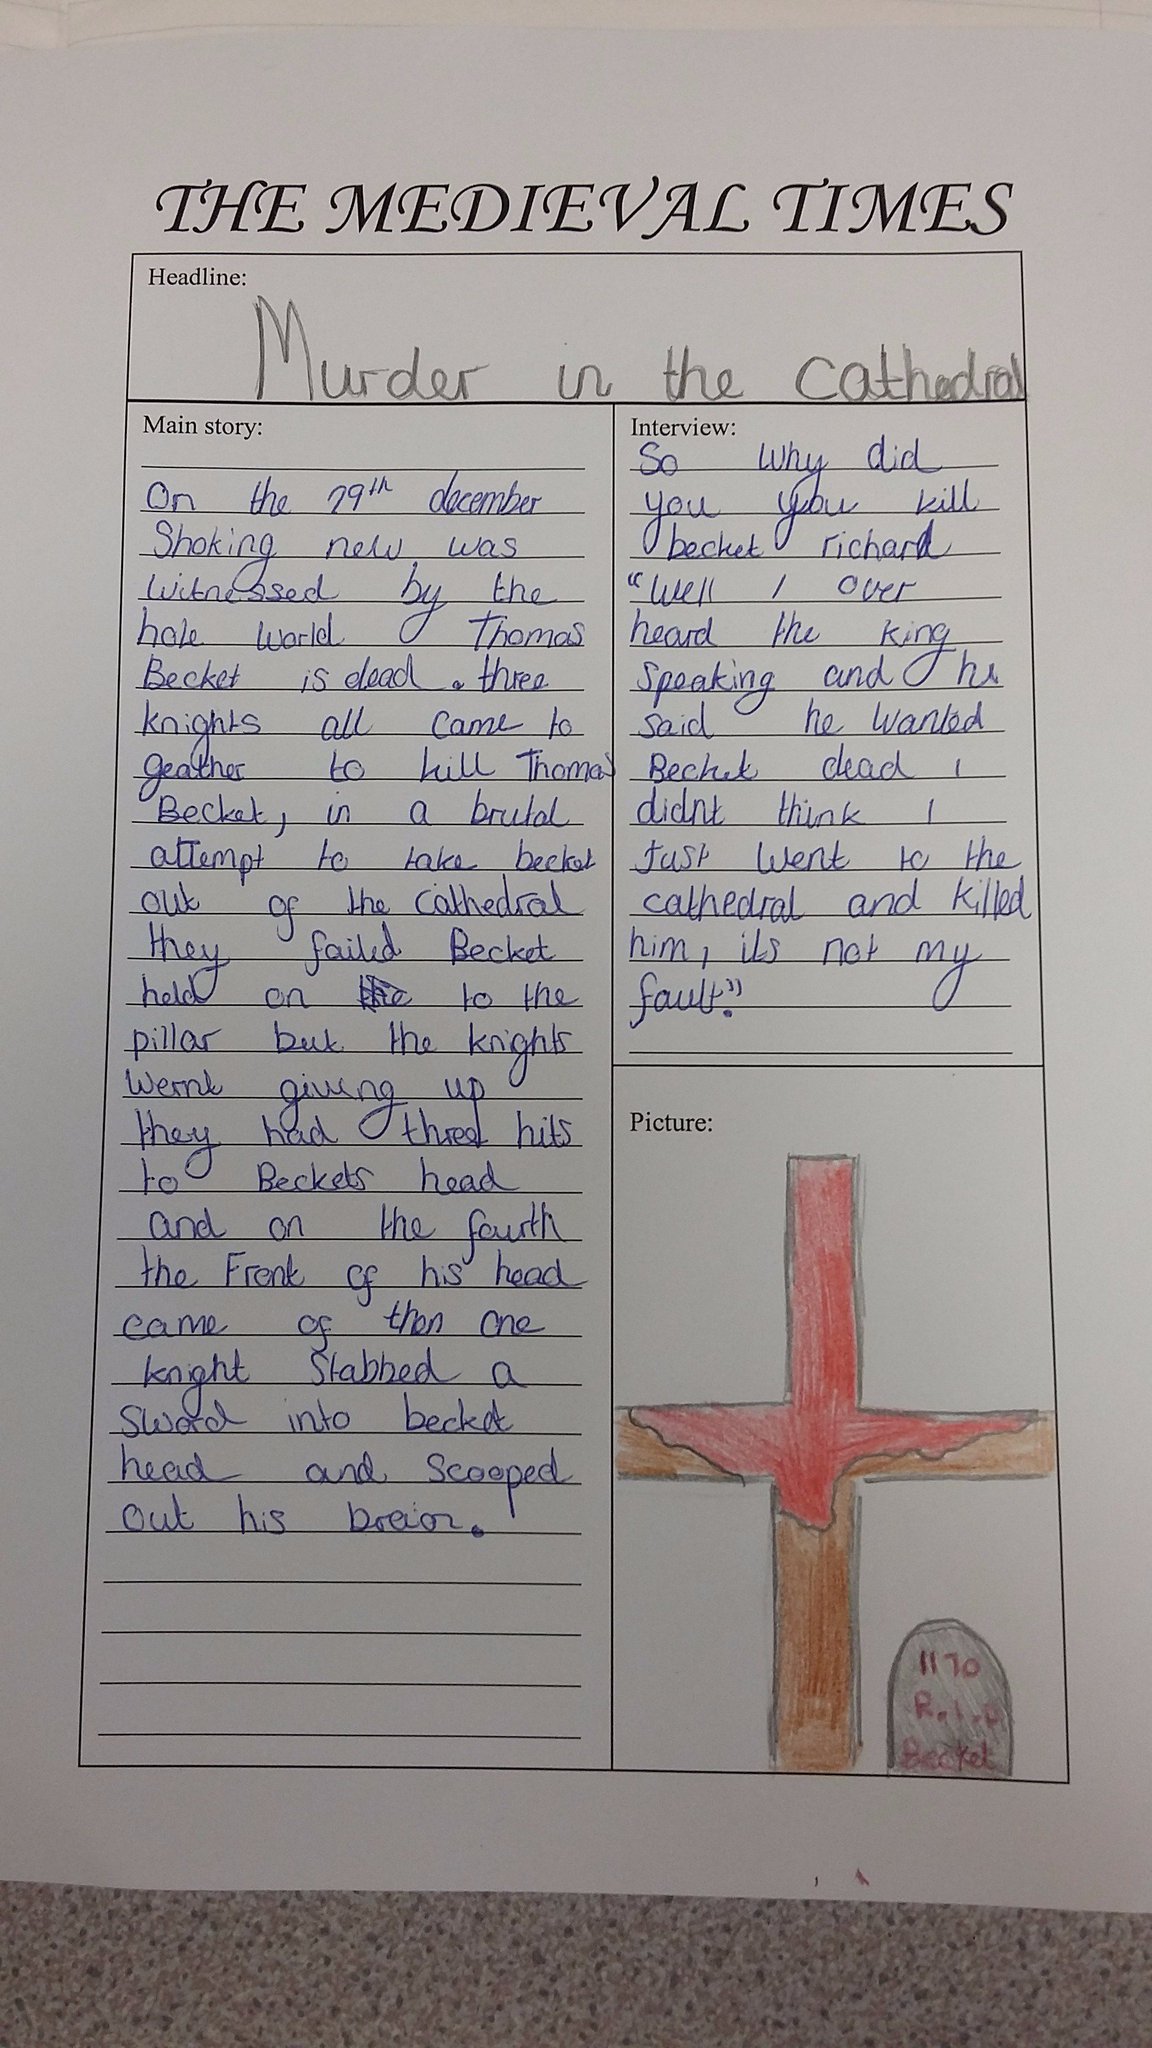 THE MEDIEVAL TIMES
Headline:
Murder in the cathedral
Main story:
On the 29th december
Shoking new was
witnessed by the
hole world Thomas
Becket is dead. three
knights all came to
geather to kill Thomas
Becket, in a brutal
attempt to take becket
out of the cathedral
they failed Becket
held on to the
pillar but the knights
wernt giving up
they had three hits
to Beckets head
and on the fourth
the Front of his head
came of then one
knight Stabbed a
sword into becket
head and scooped
out his
Interview:
So why did
you you kill
becket richard
"Well I over
heard the king
speaking and he
said he wanted
Becket dead I
didnt think I
Just went to the
cathedral and killed
him, its not my
fault."
Picture:
1170
R.I.P
Becket